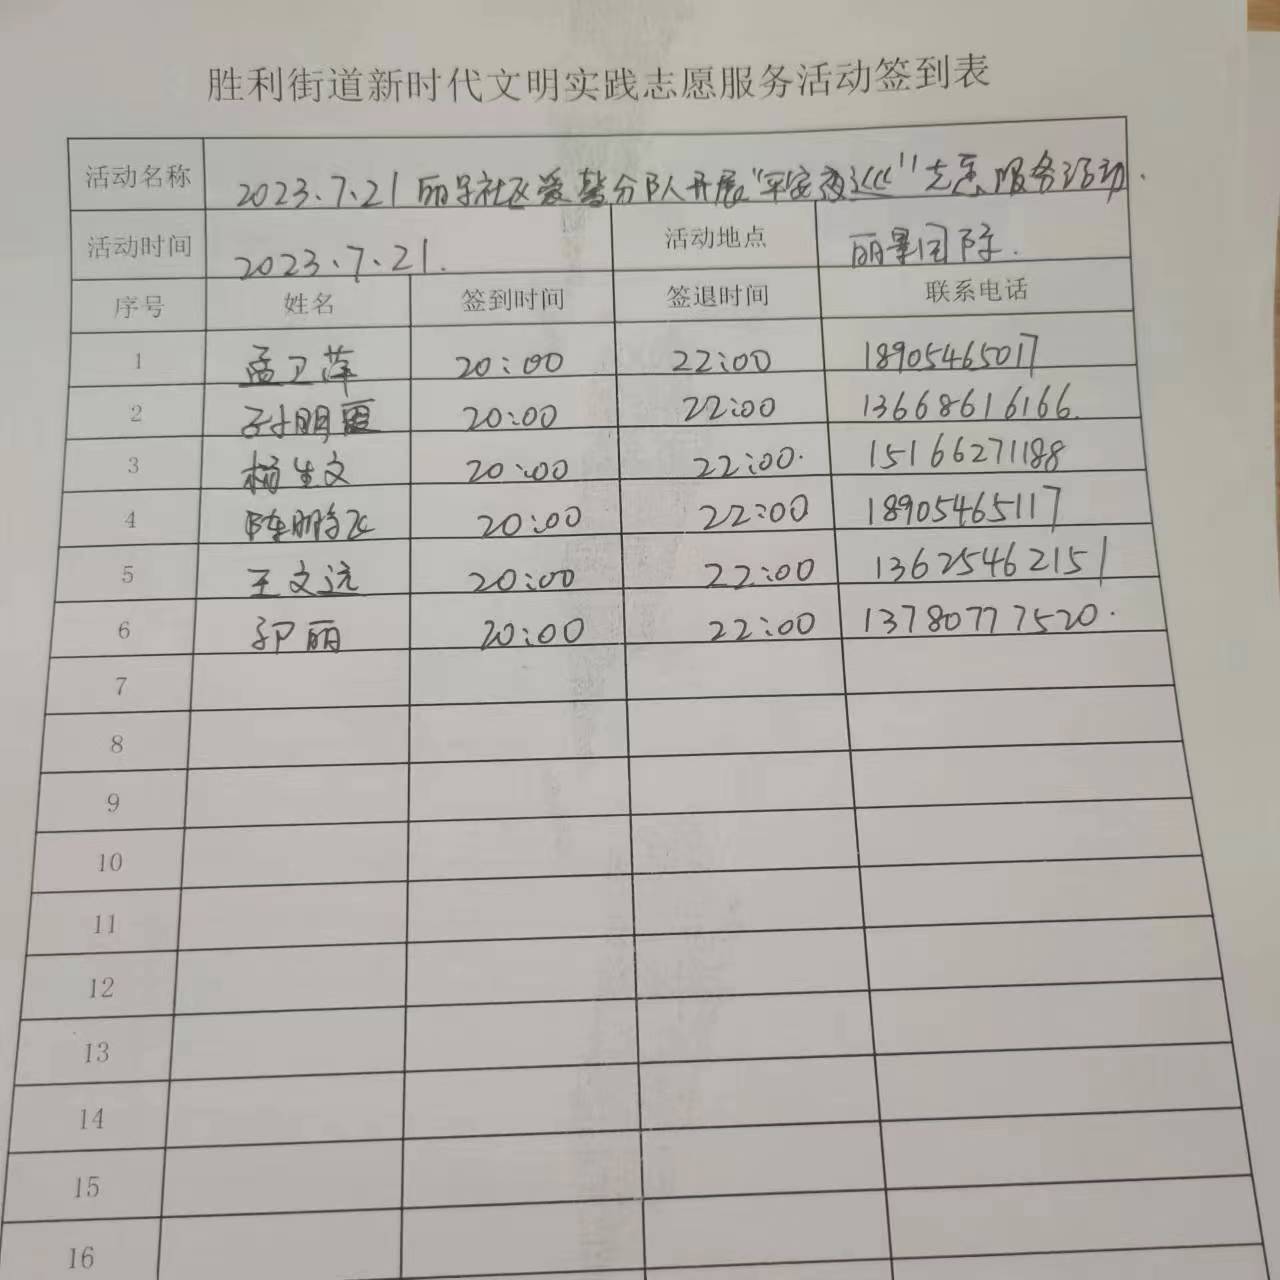 胜利街道新时代文明实践志愿服务活动签到表
活动名称 2023.7.21丽景社区爱警分队开展"平安夜巡"志愿服务活动.
活动时间 2023.7.21. 活动地点 丽景
序号 姓名 签到时间 签退时间 联系电话
1 孟卫萍 20:00 22:00 18905465017
2 孙明霞 20:00 22:00 13668616166.
3 杨生文 20:00 22:00. 15166271188
4 陈鹏飞 20:00 22:00 18905465117
5 王文远 20:00 22:00 13625462151
6 丽 20:00 22:00 13780777520.
7
8
9
10
11
12
13
14
15
16